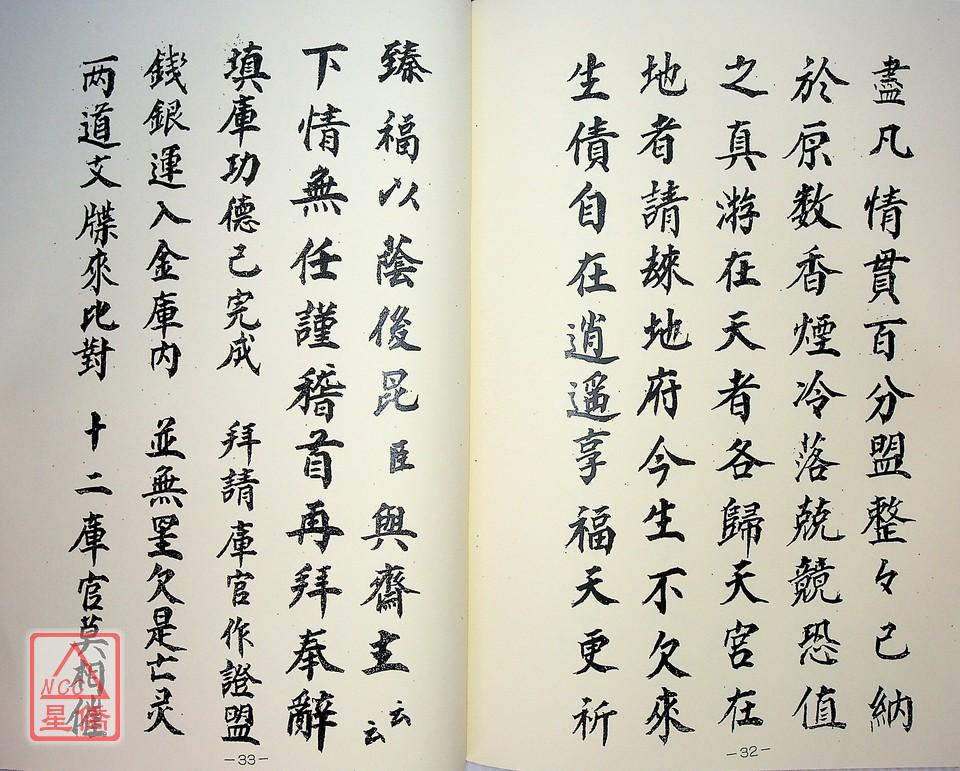 盡凡情貫百分盟整々已納
於原數香煙冷落兢競恐值
之真游在天者各歸天宮在
地者請赦地府今生不欠來
生債自在逍遥享福天更祈
-32-
臻福以蔭後昆臣與齋主云云
下情無任謹稽首再拜奉辭
填庫功德已完成 拜請庫官作證盟
錢銀運入金庫內 並無罣欠是亡灵
两道文牒來比對 十二庫官莫相催
-33-
NCC
星僑